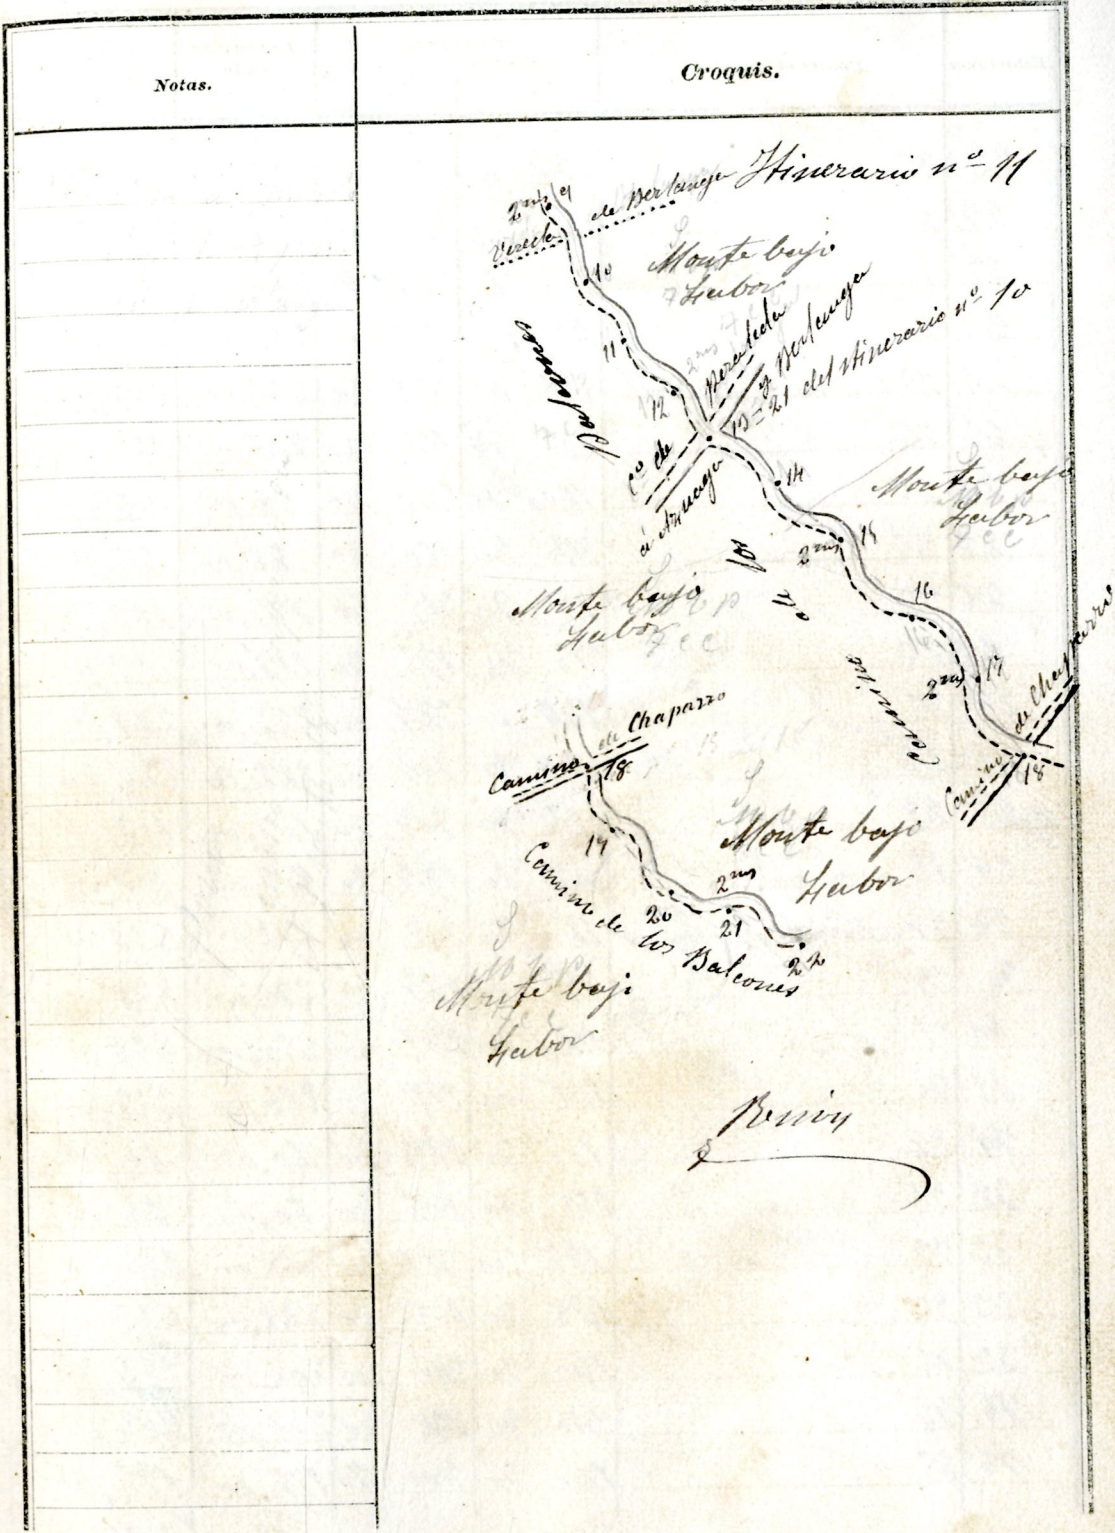 Notas.
Croquis.
Itinerario nº 11
2ms 9
Vereda de Berlanga
10
Monte bajo
Labor
11
12
Co de
á Azuaga
y Berlanga
13=21 del itinerario nº 10
14
Monte bajo
Labor
2ms 15
16
2ms 17
Monte bajo
Labor
Camino de los Balcones
Camino de Chaparro
18
Camino de Chaparro
18
19
Monte bajo
Labor
2ms
20
21
22
Camino de los Balcones
Monte bajo
Labor